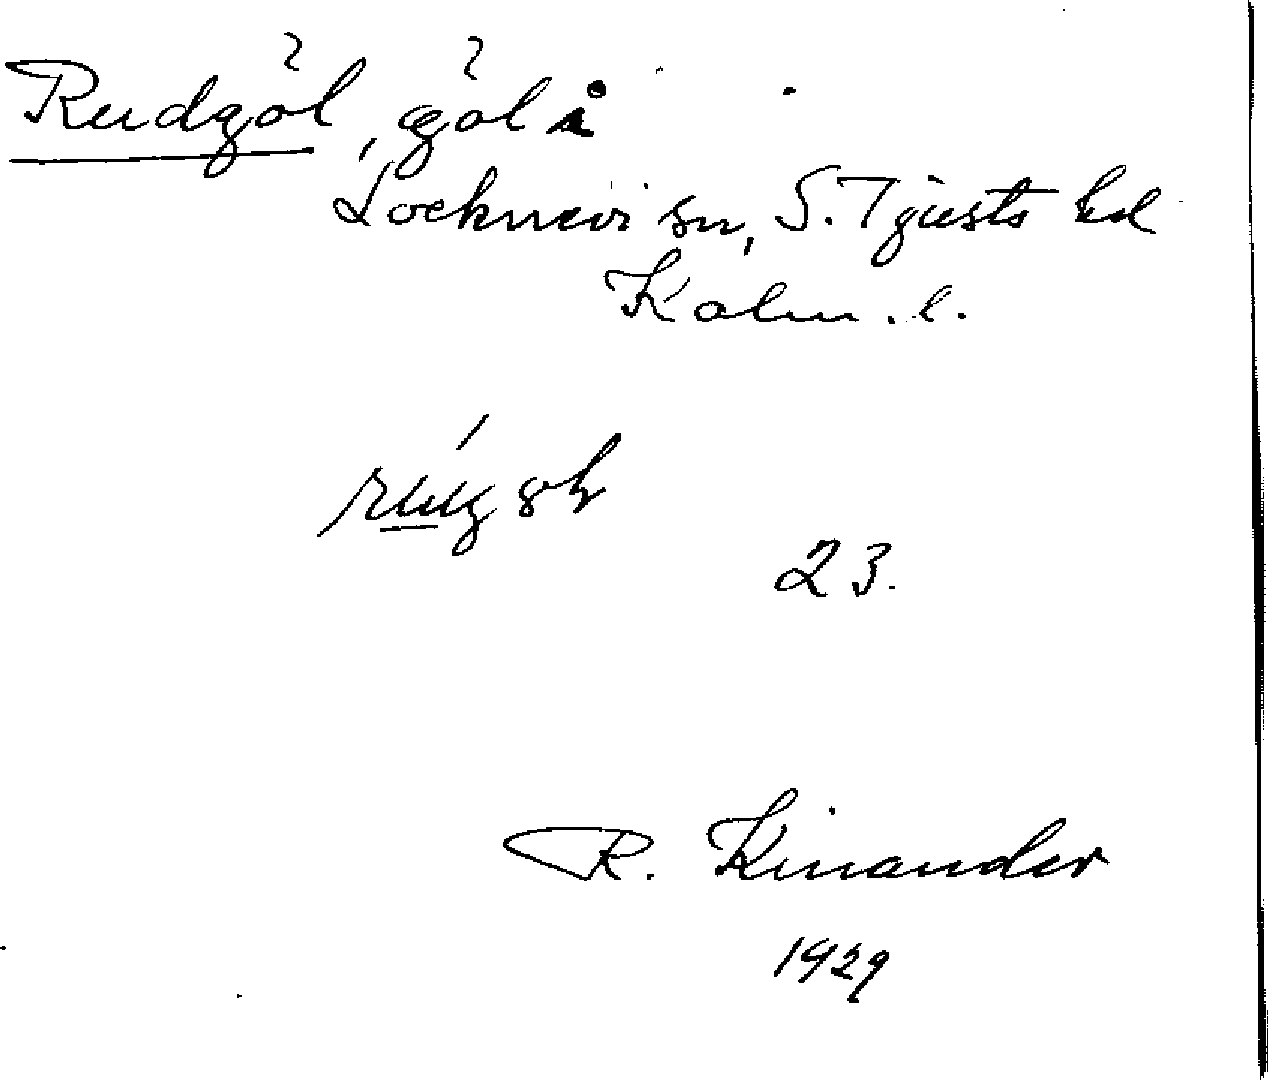 Rudgöl, göl å
Locknevi sn, S. Tjusts hd
Kalm. l.
23.
R. Kinander
1929